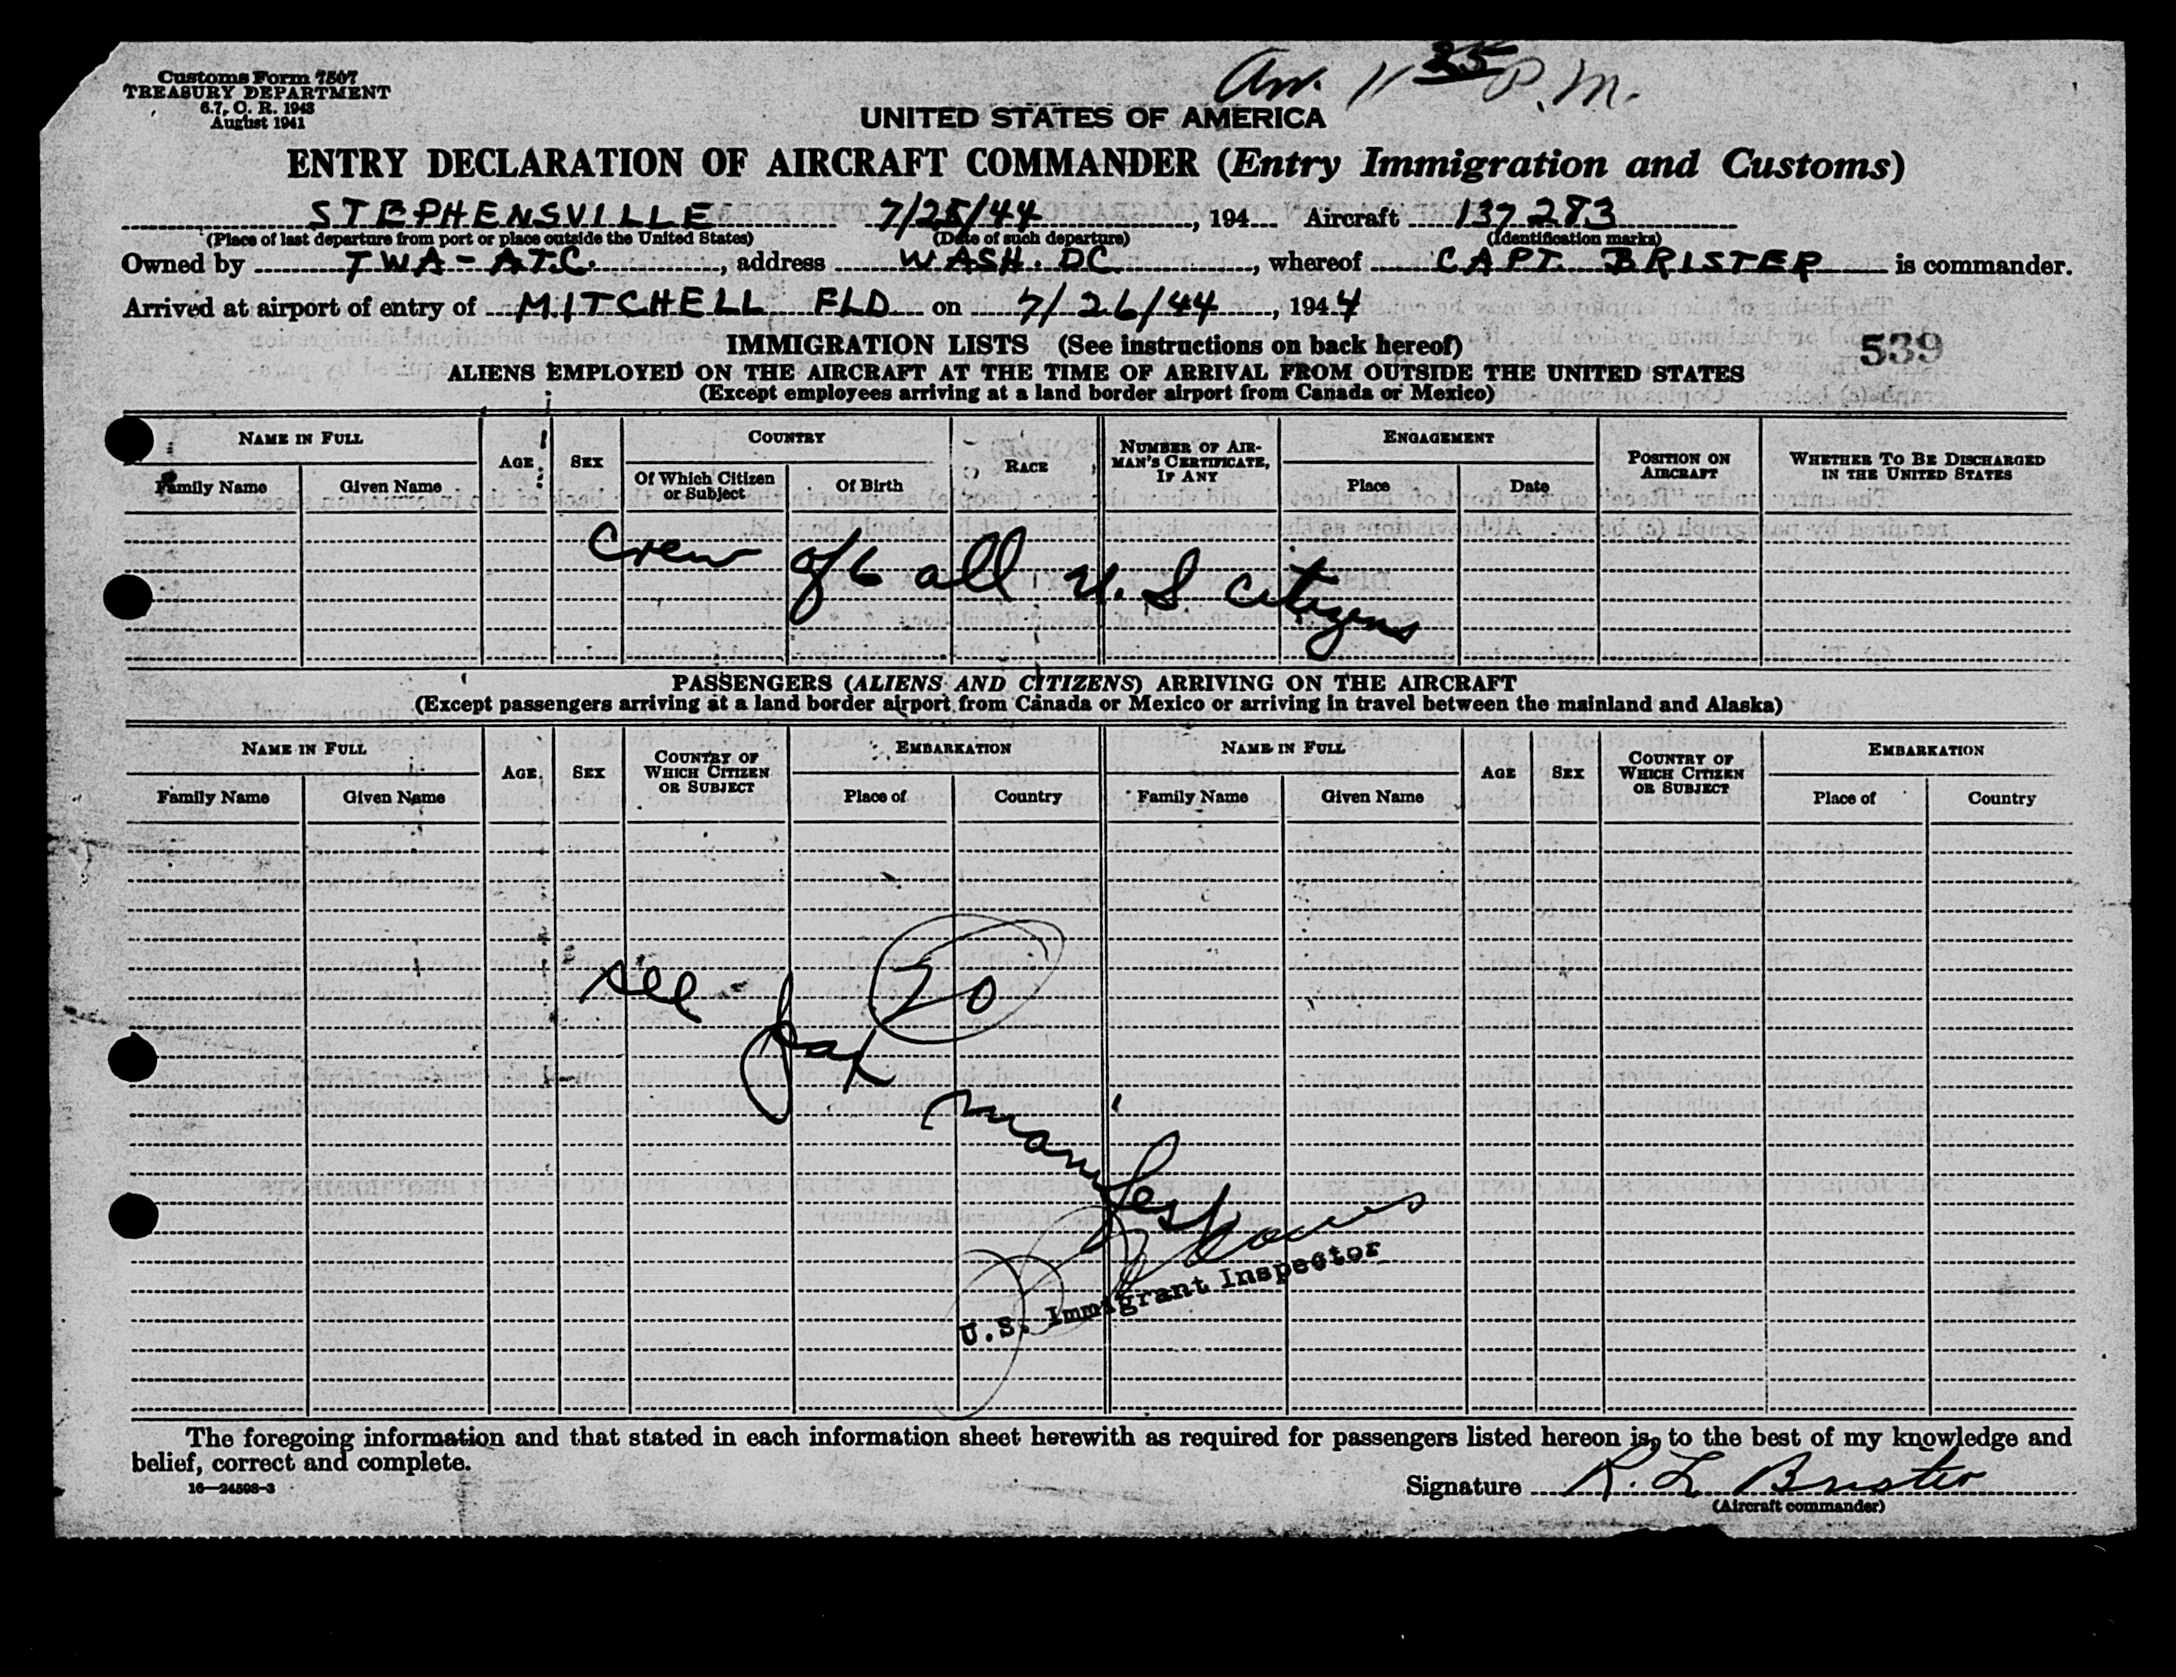 Customs Form 7507
TREASURY DEPARTMENT
6.7, C. R. 1943
August 1941
Arr. 11 25 P.M.
UNITED STATES OF AMERICA
ENTRY DECLARATION OF AIRCRAFT COMMANDER (Entry Immigration and Customs)
STEPHENSVILLE 7/25/44, 194 Aircraft 137283
(Place of last departure from port or place outside the United States) (Date of such departure) (Identification marks)
Owned by TWA-ATC., address WASH. DC, whereof CAPT. BRISTER is commander.
Arrived at airport of entry of MITCHELL FLD on 7/26/44, 1944
IMMIGRATION LISTS (See instructions on back hereof)
539
ALIENS EMPLOYED ON THE AIRCRAFT AT THE TIME OF ARRIVAL FROM OUTSIDE THE UNITED STATES
(Except employees arriving at a land border airport from Canada or Mexico)
NAME IN FULL AGE SEX COUNTRY RACE NUMBER OF AIRMAN'S CERTIFICATE, IF ANY ENGAGEMENT POSITION ON AIRCRAFT WHETHER TO BE DISCHARGED IN THE UNITED STATES
Family Name Given Name Of Which Citizen or Subject Of Birth Place Date
Crew of 6 all U.S citizens
PASSENGERS (ALIENS AND CITIZENS) ARRIVING ON THE AIRCRAFT
(Except passengers arriving at a land border airport from Canada or Mexico or arriving in travel between the mainland and Alaska)
NAME IN FULL AGE SEX COUNTRY OF WHICH CITIZEN OR SUBJECT EMBARKATION NAME IN FULL AGE SEX COUNTRY OF WHICH CITIZEN OR SUBJECT EMBARKATION
Family Name Given Name Place of Country Family Name Given Name Place of Country
20
see pax manifest
U.S. Immigrant Inspector
The foregoing information and that stated in each information sheet herewith as required for passengers listed hereon is, to the best of my knowledge and
belief, correct and complete.
16—24508-3
Signature R. L Brister
(Aircraft commander)